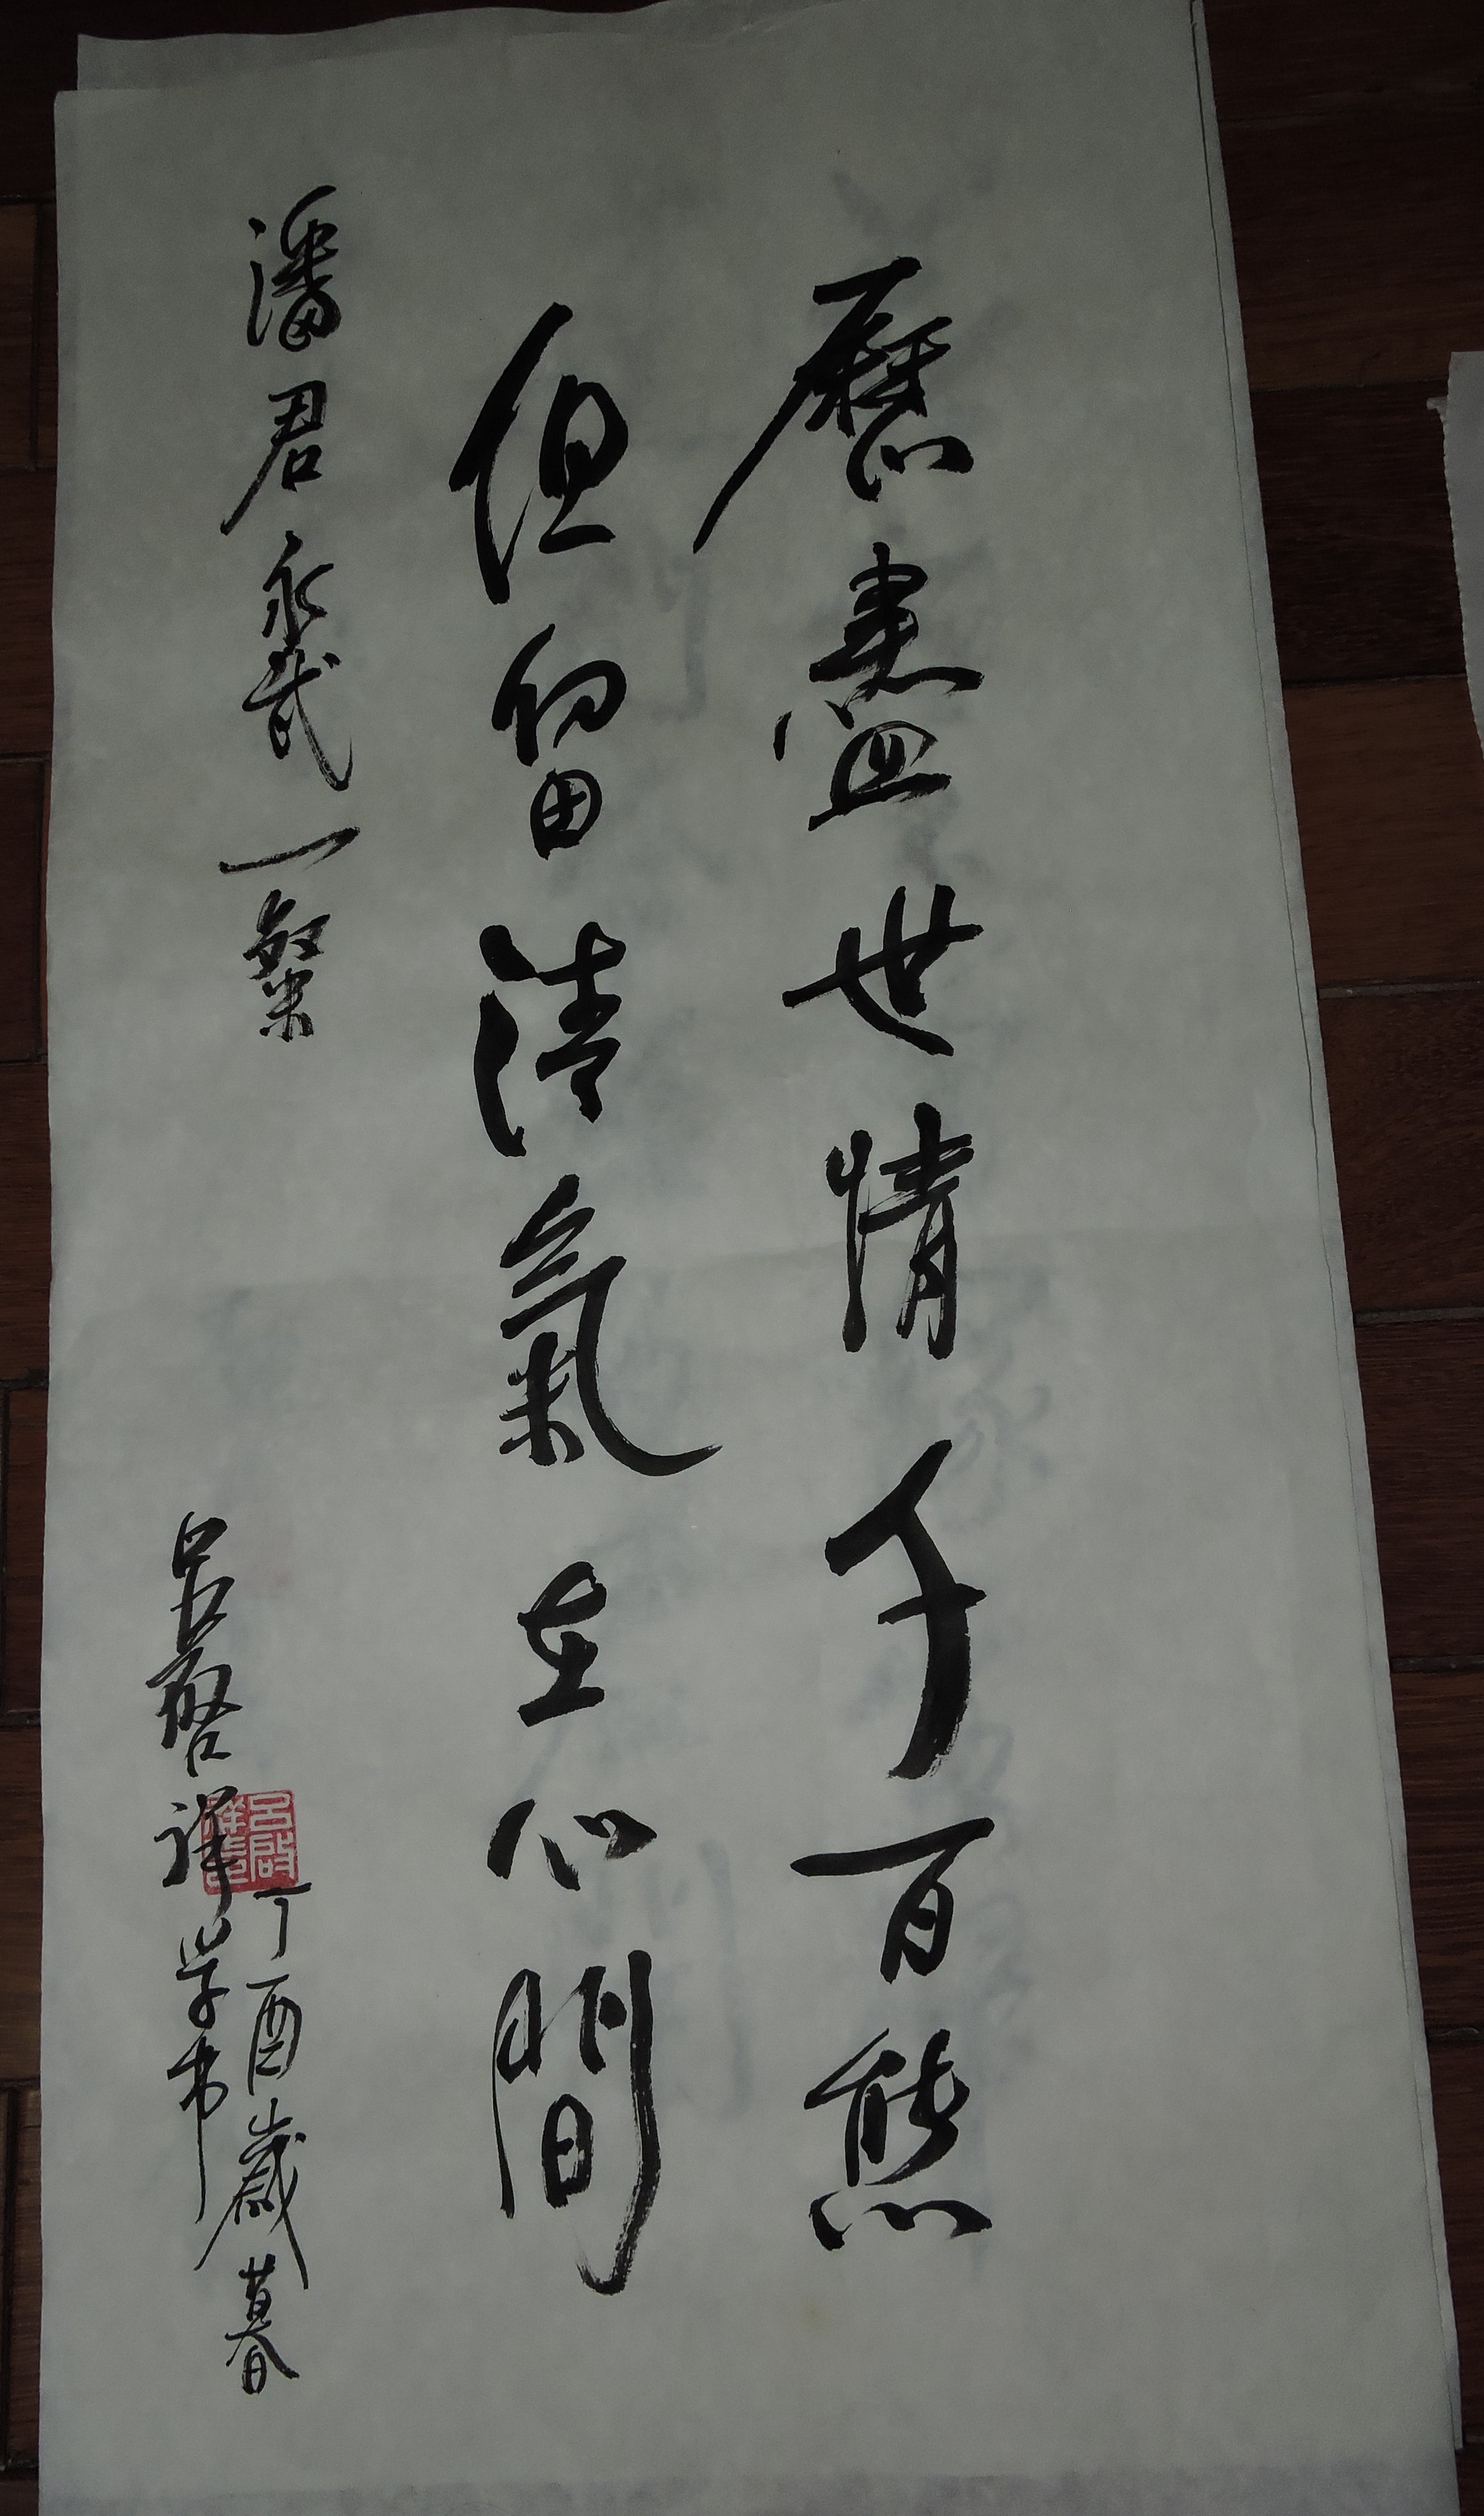 歷盡世情千百態
但留清氣在心間
潘君永武一粲
丁酉歲暮
吕啓祥学书
吕啟祥